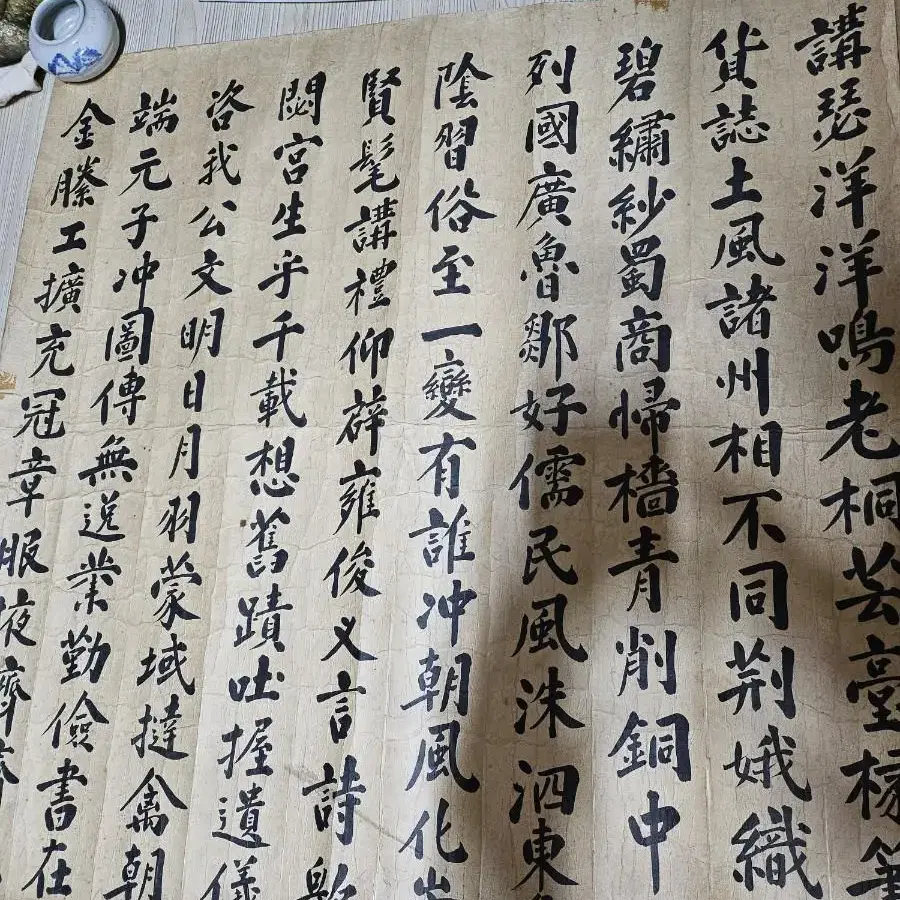 講瑟洋洋鳴老桐芸臺椽筆
貨誌土風諸州相不同荆娥織
碧繡紗蜀商帰檣青削銅中
列國廣魯鄒好儒民風洙泗東
陰習俗至一變有誰冲朝風化
賢髦講禮仰辟雍俊乂言詩
閟宮生乎千載想舊蹟吐握遺儀
咨我公文明日月羽蒙域撻禽朝
端元子冲圖傳無逸業勤儉書在
金縢工擴充冠章服掖